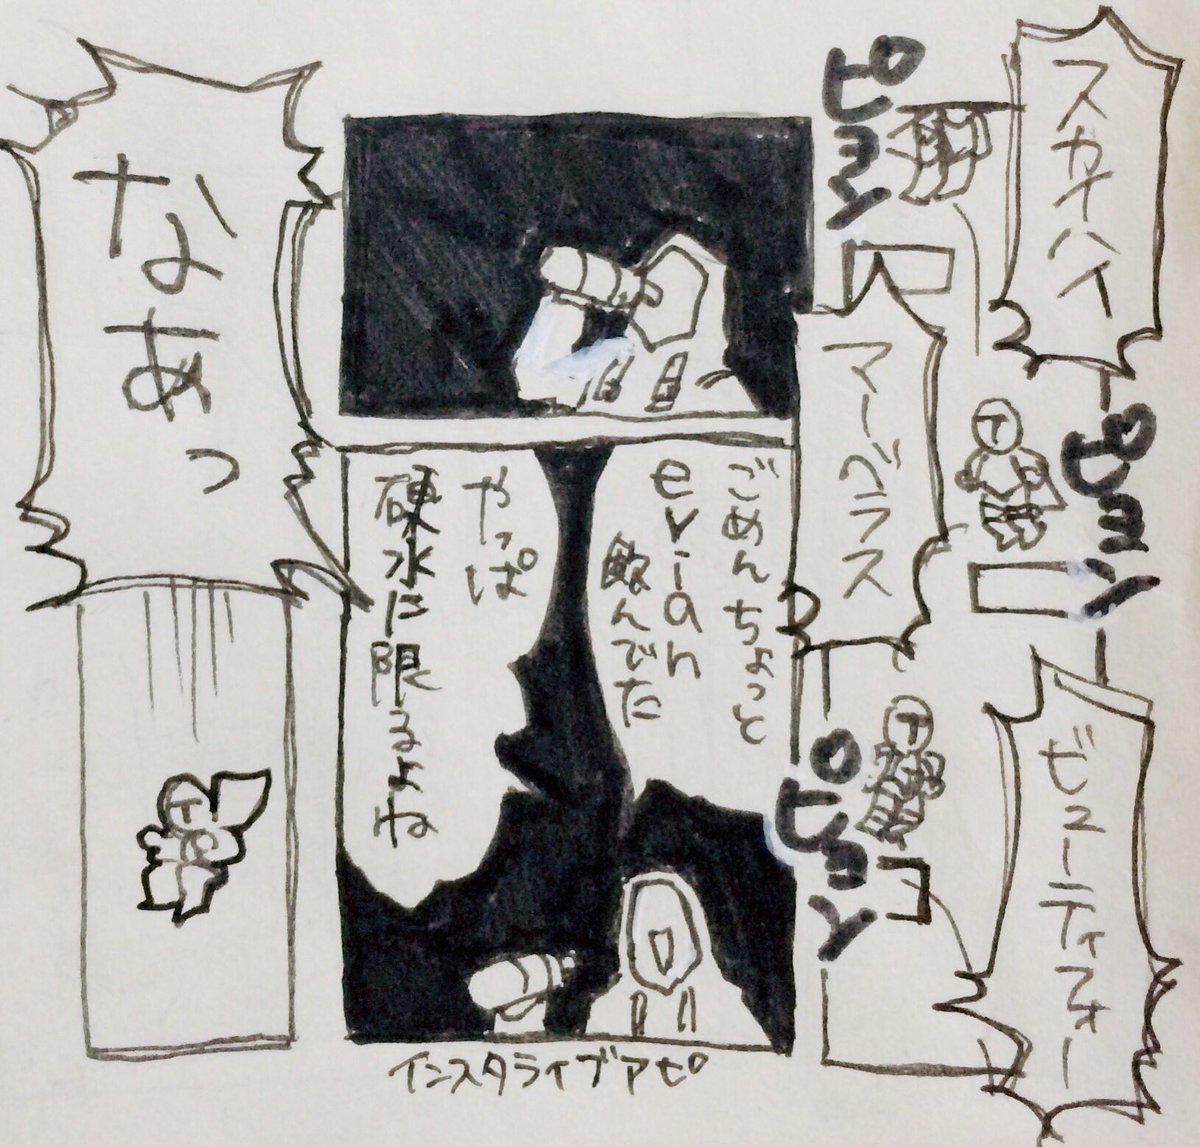 スカイハイ
ピョン
ピョン
マーベラス
ビューティフォー
ピョン
ごめんちょっと
evian
飲んでた
やっぱ
硬水に限るよね
インスタライブアピ
なあっ
T
T
T